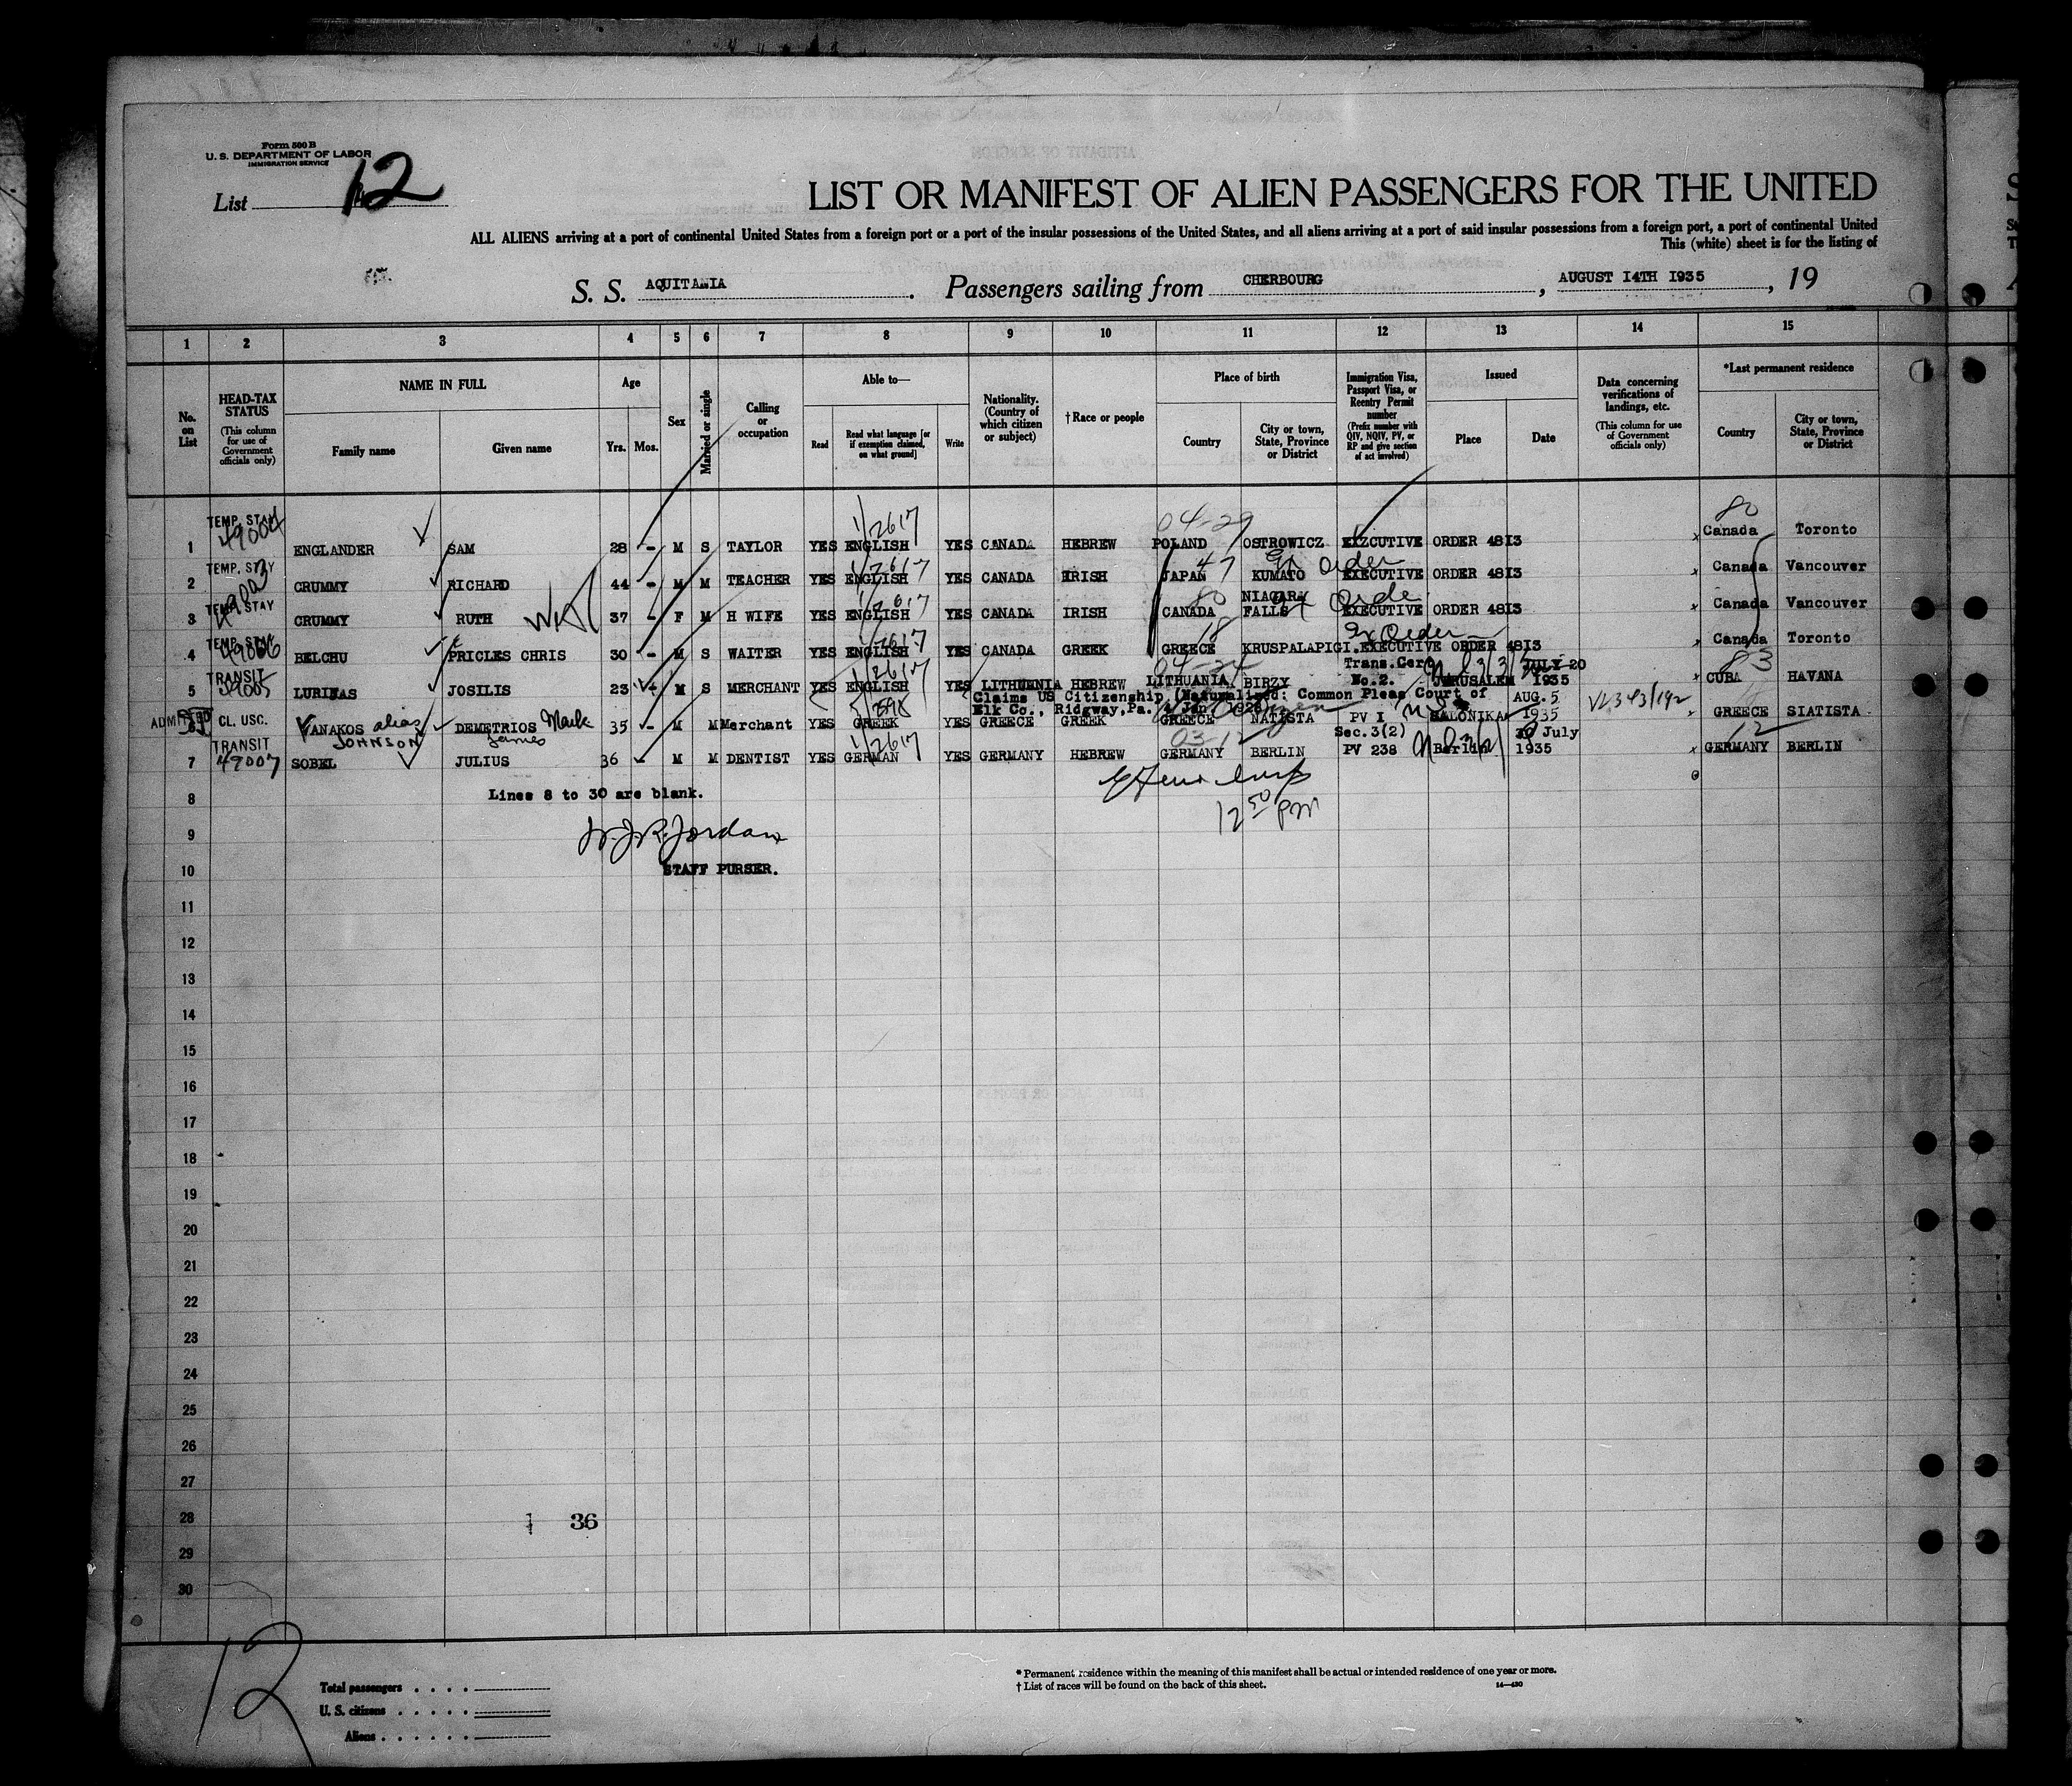 Form 500 B
U. S. DEPARTMENT OF LABOR
IMMIGRATION SERVICE
List 12
LIST OR MANIFEST OF ALIEN PASSENGERS FOR THE UNITED
ALL ALIENS arriving at a port of continental United States from a foreign port or a port of the insular possessions of the United States, and all aliens arriving at a port of said insular possessions from a foreign port, a port of continental United
This (white) sheet is for the listing of
S. S. AQUITANIA. Passengers sailing from CHERBOURG, AUGUST I4TH I935, 19
1 2 3 4 5 6 7 8 9 10 11 12 13 14 15
No. on List
HEAD-TAX STATUS (This column for use of Government officials only)
NAME IN FULL
Family name Given name
Age
Yrs. Mos.
Sex
Married or single
Calling or occupation
Able to—
Read
Read what language [or if exemption claimed, on what ground]
Write
Nationality. (Country of which citizen or subject)
†Race or people
Place of birth
Country
City or town, State, Province or District
Immigration Visa, Passport Visa, or Reentry Permit number (Prefix number with QIV, NQIV, PV, or RP and give section of act involved)
Issued
Place Date
Data concerning verifications of landings, etc. (This column for use of Government officials only)
*Last permanent residence
Country
City or town, State, Province or District
TEMP. STAY 49004 1/2617 04-29 80
1 ENGLANDER SAM 28 - M S TAYLOR YES ENGLISH YES CANADA HEBREW POLAND OSTROWICZ EXECUTIVE ORDER 48I3 Canada Toronto
TEMP. STAY 1/2617 47 Ex Order
2 CRUMMY RICHARD 44 - M M TEACHER YES ENGLISH YES CANADA IRISH JAPAN KUMATO EXECUTIVE ORDER 48I3 Canada Vancouver
TEMP. STAY 1/2617 80 NIAGARA Ex Orde
3 CRUMMY RUTH 37 - F M H WIFE YES ENGLISH YES CANADA IRISH CANADA FALLS EXECUTIVE ORDER 48I3 Canada Vancouver
TEMP. STAY 1/2617 18 Ex Order
4 BELCHU PRICLES CHRIS 30 - M S WAITER YES ENGLISH YES CANADA GREEK GREECE KRUSPALAPIGI. EXECUTIVE ORDER 48I3 Canada Toronto
TRANSIT 49005 1/2617 04-24 Trans.Cert JULY 20 83
5 LURINAS JOSILIS 23 - M S MERCHANT YES ENGLISH YES LITHUENIA HEBREW LITHUANIA BIRZY No.2. JERUSALEM I935 CUBA HAVANA
Claims US Citizenship (Naturalized: Common Pleas Court of
Elk Co., Ridgway,Pa. 4 Jan. 1928
ADMITTED CL. USC. AUG.5 VL343/192
6 VANAKOS alias JOHNSON DEMETRIOS Mark James 35 - M M Merchant YES GREEK YES GREECE GREEK GREECE NATISTA PV I SALONIKA I935 GREECE SIATISTA
TRANSIT 49007 1/2617 03-12 Sec.3(2) July 12
7 SOBEL JULIUS 36 M M DENTIST YES GERMAN YES GERMANY HEBREW GERMANY BERLIN PV 238 Berlin 1935 GERMANY BERLIN
8 Lines 8 to 30 are blank.
12 50 PM
9 Jordan
10 STAFF PURSER.
11
12
13
14
15
16
17
18
19
20
21
22
23
24
25
26
27
28 1 36
29
30
12
Total passengers . . . .
U. S. citizens . . . . .
Aliens . . . . . .
* Permanent residence within the meaning of this manifest shall be actual or intended residence of one year or more.
† List of races will be found on the back of this sheet.
14—430